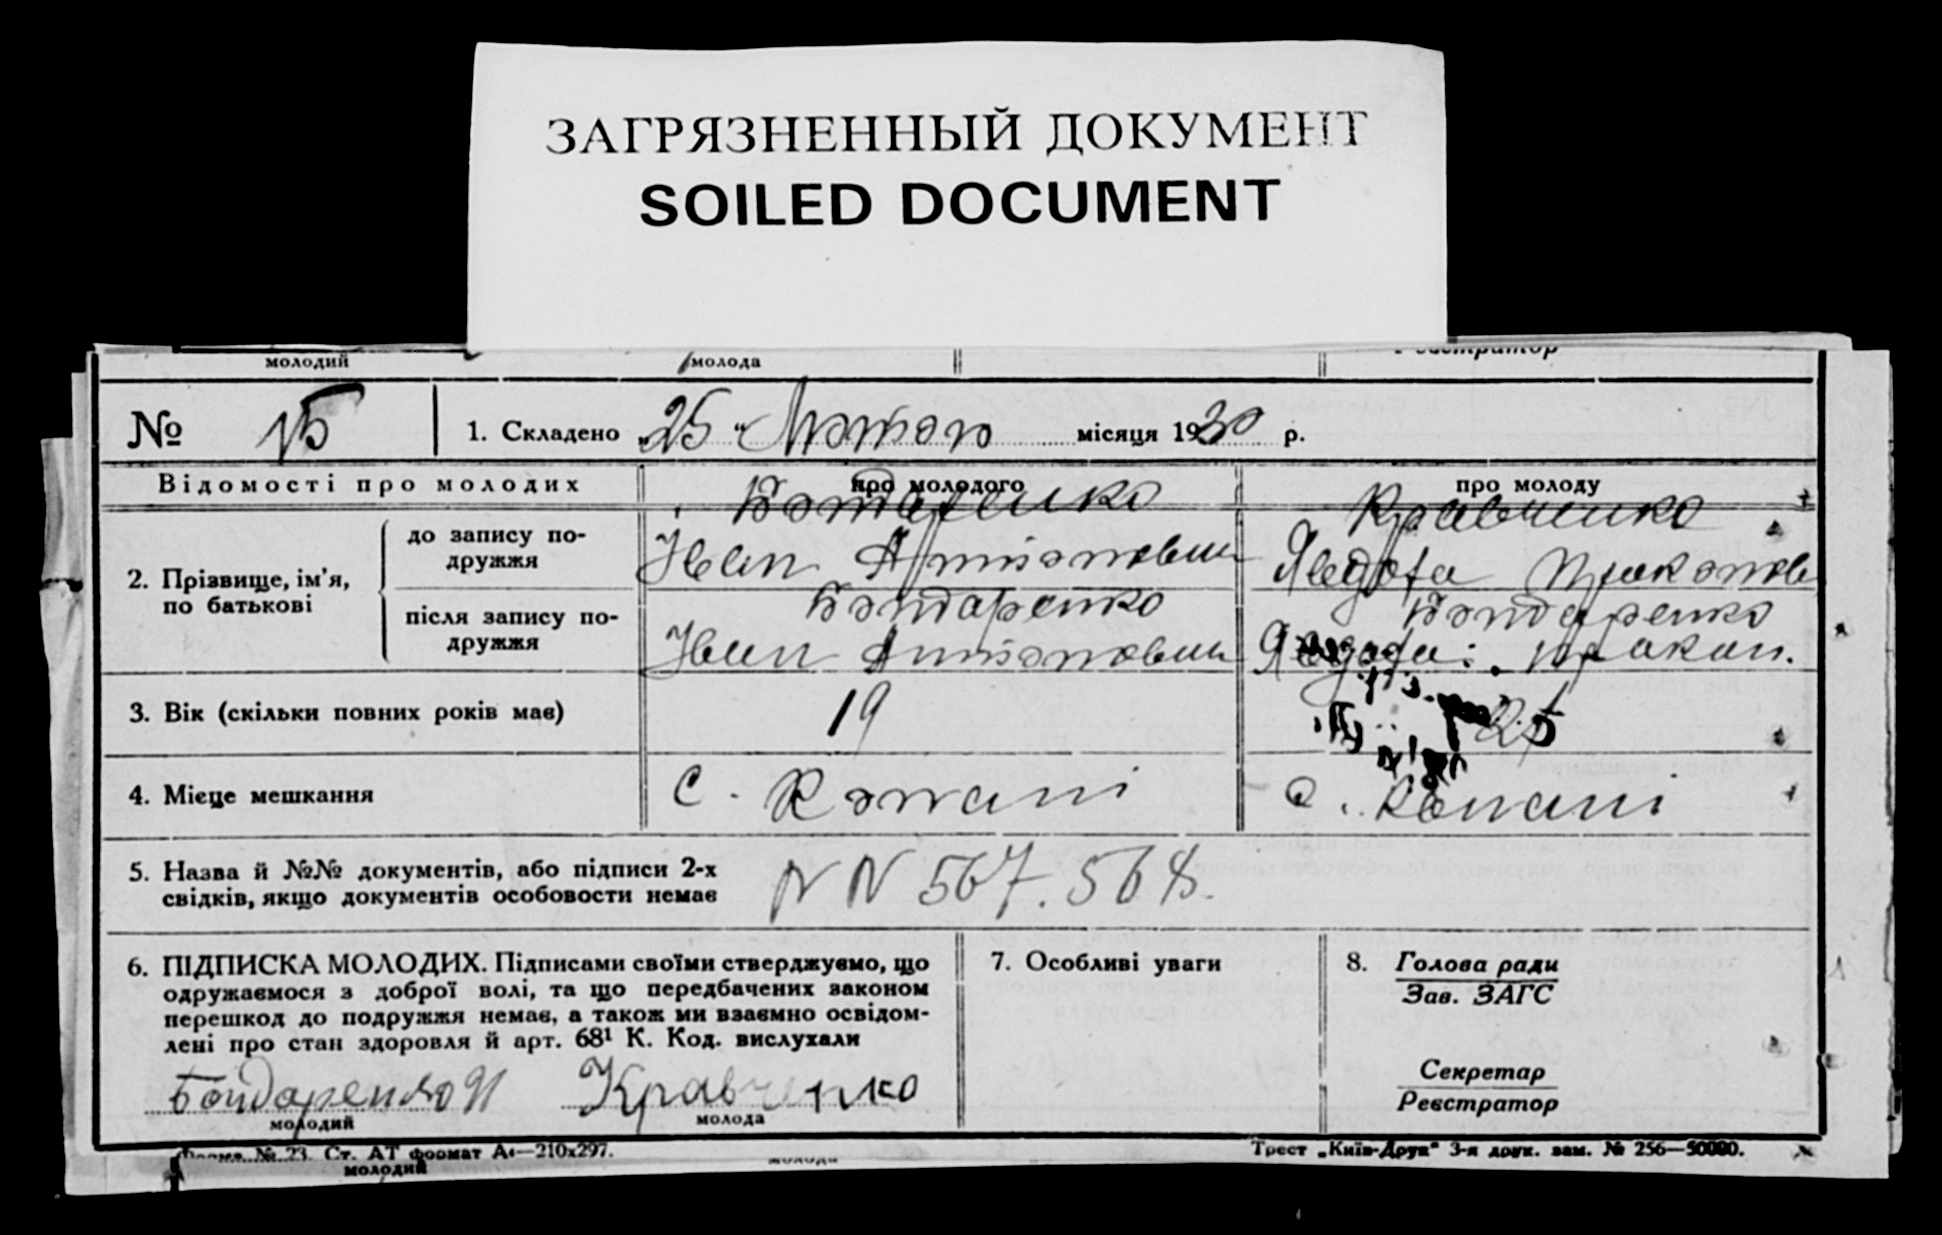 ЗАГРЯЗНЕННЫЙ ДОКУМЕНТ
SOILED DOCUMENT
молодий молода Реєстратор
№ 15 1. Складено „25“ Лютого місяця 1930 р.
Відомості про молодих про молодого про молоду
2. Прізвище, ім'я, по батькові
до запису по-
дружжя
Бондаренко
Иван Антонович
Кравченко
Явдоха Пракопов
після запису по-
дружжя
Бондаренко
Иван Антонович
Бондаренко
Явдоха Пракоп.
3. Вік (скільки повних років має) 19 25
4. Місце мешкання с. Копані с. Копані
5. Назва й №№ документів, або підписи 2-х
свідків, якщо документів особовости немає
N N 567. 568.
6. ПІДПИСКА МОЛОДИХ. Підписами своїми стверджуємо, що
одружаємося з доброї волі, та що передбачених законом
перешкод до подружжя немає, а також ми взаємно освідом-
лені про стан здоровля й арт. 68¹ К. Код. вислухали
Бондаренко И Кравченко
молодий молода
7. Особливі уваги
8. Голова ради
Зав. ЗАГС
Секретар
Реєстратор
Форма № 23. Ст. АТ формат А4—210х297. Трест „Київ-Друк“ 3-я друк. зам. № 256—50000.
молодий молода